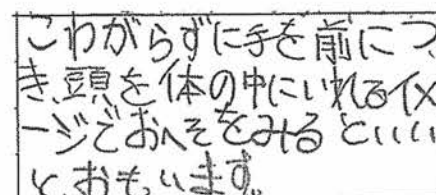 こわがらずに手を前につ
き、頭を体の中にいれるイメ
ージでおへそをみるといい
とおもいます。